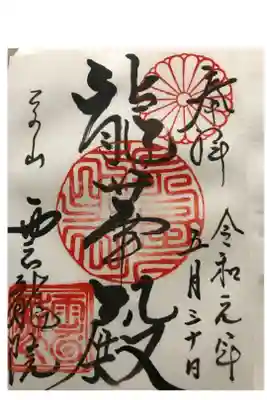 奉拝
令和元年
五月三十日
龍華殿
泉山
雲龍院